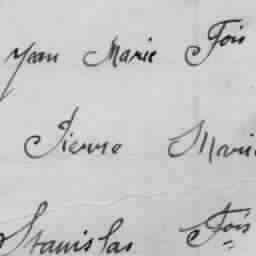 Jean Marie Fois
Pierre Marie
Stanislas Fois